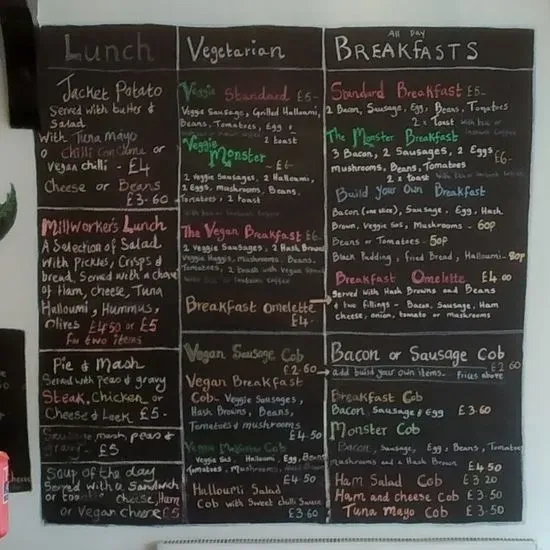 Lunch
Jacket Potato
Served with butter &
Salad
With Tuna mayo
o Chilli Con Carne or
Vegan chilli - £4
Cheese or Beans
£3-60
Millworker's Lunch
A Selection of Salad
with Pickles, Crisps &
bread, Served with a choice
of Ham, cheese, Tuna
Halloumi, Hummus,
Olives £4.50 or £5
For two items
Pie & Mash
Served with peas & gravy
Steak, Chicken or
Cheese & Leek £5-
Sausage, mash, peas &
gravy - £5
Soup of the day
Served with a Sandwich
or toastie cheese, Ham
or Vegan cheese £5
Vegetarian
Veggie Standard £5-
Veggie Sausage, Grilled Halloumi,
Beans, Tomatoes, Egg &
2 toast
Veggie
Monster
- £6-
2 Veggie Sausages, 2 Halloumi,
2 Eggs, Mushrooms, Beans,
Tomatoes, 2 toast
The Vegan Breakfast £6-
2 Veggie Sausages, 2 Hash Browns
Veggie Haggis, Mushrooms, Beans,
Tomatoes, 2 toast with vegan spread
Breakfast Omelette
£4-
Vegan Sausage Cob
£2.60
Vegan Breakfast
Cob - Veggie Sausages,
Hash Browns, Beans,
Tomatoes & mushrooms
£4.50
Veggie Monster Cob
Veggie Sos, Halloumi, Egg, Beans
Tomatoes, Mushrooms,
£4.50
Halloumi Salad
Cob with Sweet chilli Sauce
£3.60
All Day
Breakfasts
Standard Breakfast £5-
2 Bacon, Sausage, Egg, Beans, Tomatoes
2 x Toast with tea or
Instant Coffee
The Monster Breakfast
3 Bacon, 2 Sausages, 2 Eggs £6-
mushrooms, Beans, Tomatoes
2 x toast
Build Your Own Breakfast
Bacon (one slice), Sausage, Egg, Hash
Brown, Veggie Sos, Mushrooms - 60p
Beans or Tomatoes - 50p
Black Pudding, fried Bread, Halloumi - 80p
Breakfast Omelette £4.00
Served with Hash Browns and Beans
& two fillings - Bacon, Sausage, Ham
cheese, onion, tomato or mushrooms
Bacon or Sausage Cob
£2.60
add build your own items. Prices above
Breakfast Cob
Bacon Sausage & Egg £3.60
Monster Cob
Bacon, Sausage, Egg, Beans, Tomatoes
Mushrooms and a Hash Brown
£4.50
Ham Salad Cob £3.20
Ham and cheese Cob £3.50
Tuna mayo Cob £3.50